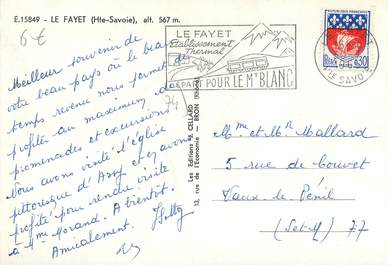 E.15849 - LE FAYET (Hte-Savoie), alt. 567 m.
6€
LE FAYET
Etablissement
Thermal
DEPART POUR LE Mt BLANC
REPUBLIQUE FRANÇAISE
0,30
LE FAYET
HTE SAVOIE
Meilleur souvenir de
votre beau pays où le beau
temps revenu nous permet de
profiter au maximum de
promenades et excursions
Nous avons visité l'église
pittoresque d'Assy et y avons
profité pour rendre visite
à Mme Morand. A bientôt.
Amicalement.
74
Les Editions J. CELLARD
13, rue de l'Economie - BRON (Rhône)
Mme et Mr Mallard
5 rue de Couvet
Vaux le Pénil
(S-et-M) 77